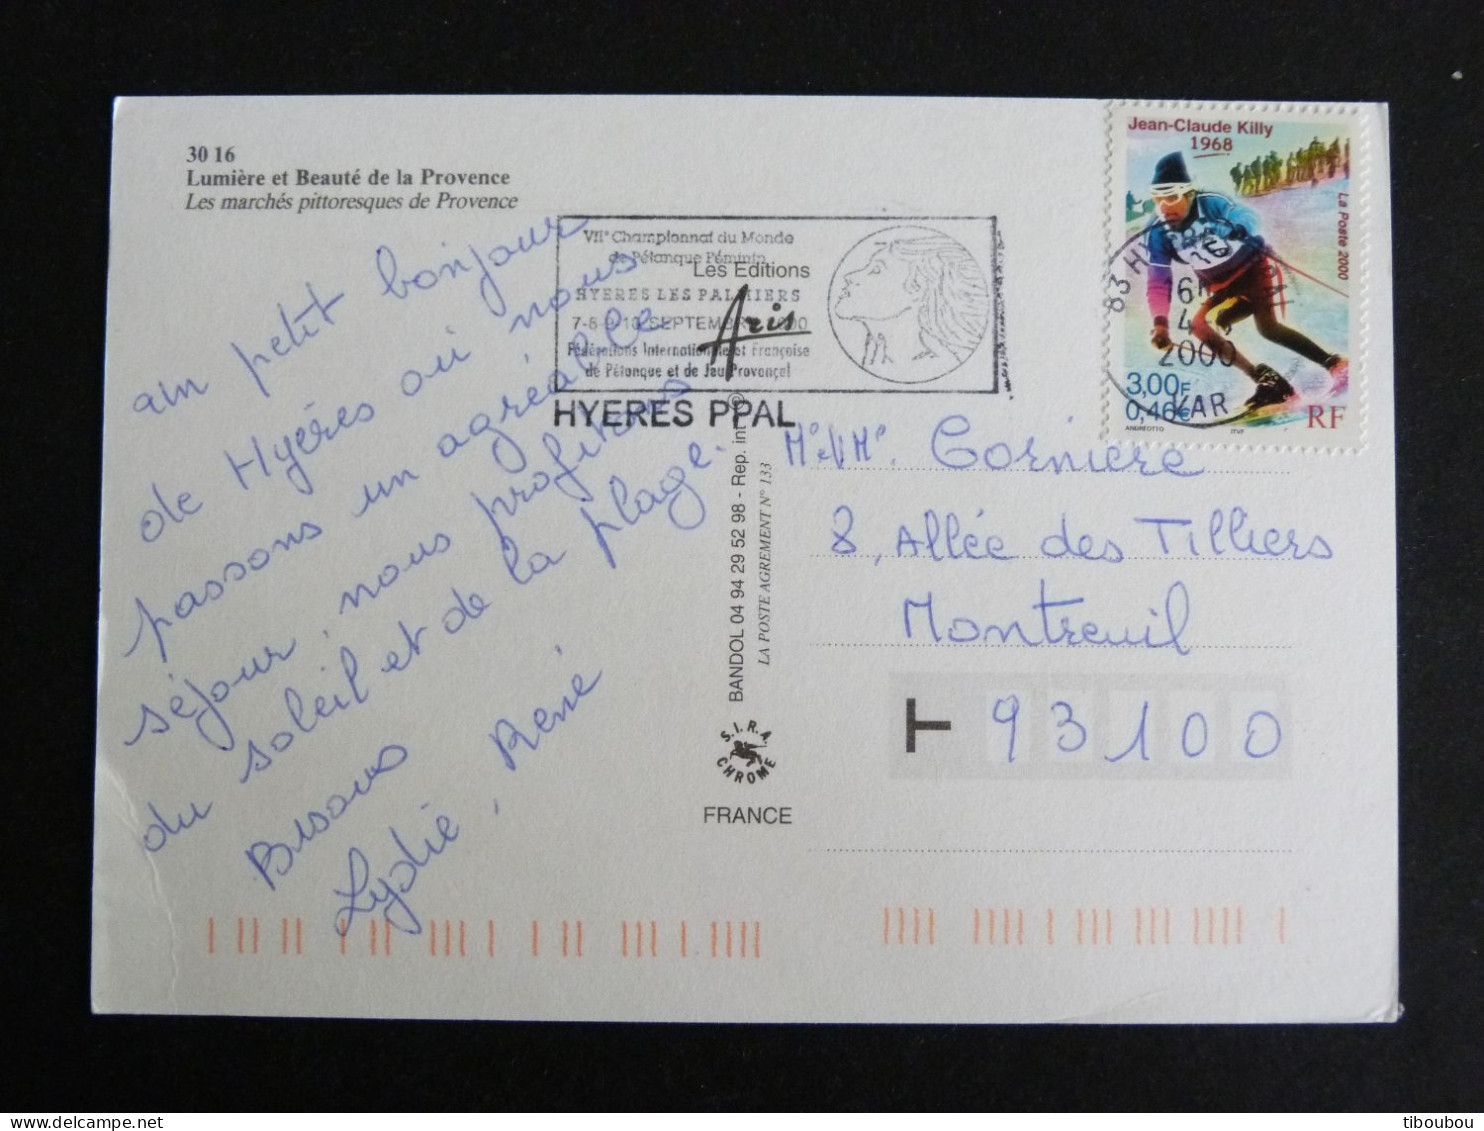 30 16
Lumière et Beauté de la Provence
Les marchés pittoresques de Provence
un petit bonjour
de Hyères où nous
passons un agréable
séjour, nous profitons
du soleil et de la plage.
Bisous
Lydie, René
VIIe Championnat du Monde
de Pétanque Féminin
HYERES LES PALMIERS
7-8-9-10 SEPTEMBRE 2000
Fédérations Internationale et Française
de Pétanque et de Jeu Provençal
HYERES PPAL
Les Editions
Aris
BANDOL 04 94 29 52 98 - Rep. int. ©
LA POSTE AGREMENT N° 133
S.I.R.A.
CHROME
FRANCE
Jean-Claude Killy
1968
La Poste 2000
3,00F
0,46€
RF
ANDRÉOTTO
ITVF
83 HYERES PPAL
16H
4
2000
VAR
Me Mr Corniere
8, Allée des Tilliers
Montreuil
T 93100
tiboubou